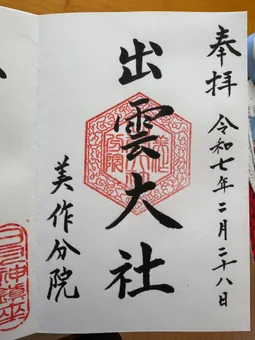 奉拝 令和七年二月二十八日
出雲大社
美作分院